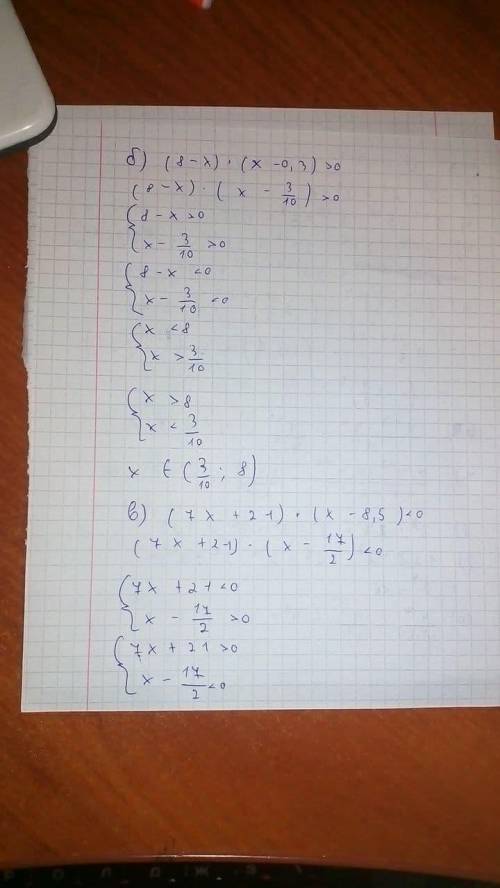 б) (8-x)·(x-0,3)>0
(8-x)·(x - 3/10)>0
{8-x>0
x - 3/10 >0
{8-x <0
x - 3/10 <0
{x <8
x > 3/10
{x >8
x < 3/10
x ∈ (3/10; 8)
в) (7x+21)·(x-8,5)<0
(7x+21)·(x - 17/2)<0
{7x+21<0
x - 17/2 >0
{7x+21>0
x - 17/2 <0